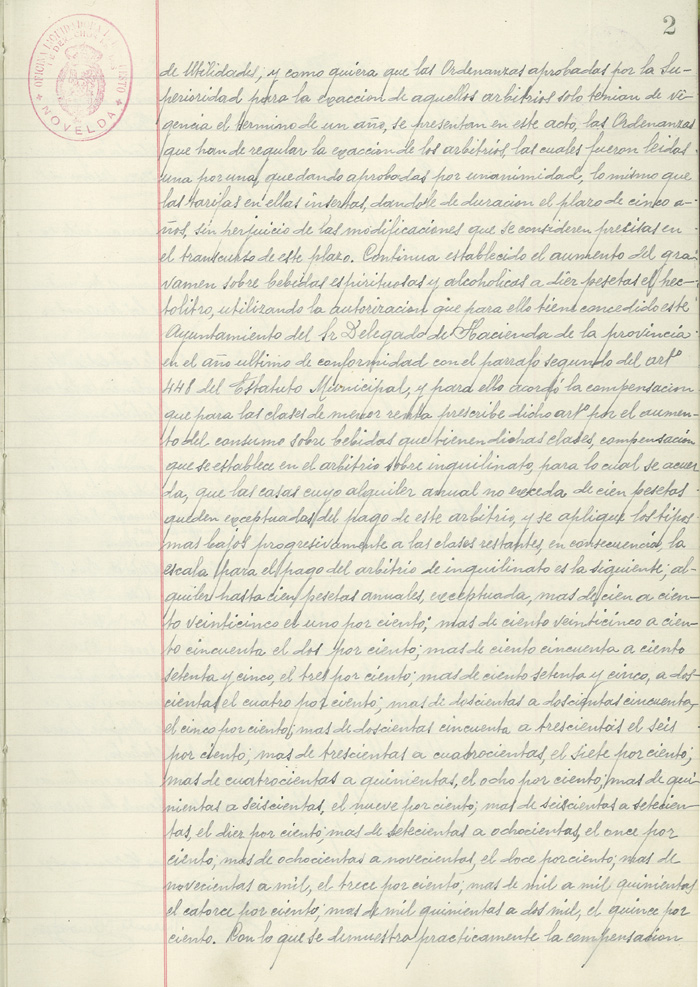 2
NOVELDA
de Utilidades; y como quiera que las Ordenanzas aprobadas por la Su-
perioridad para la exaccion de aquellos arbitrios solo tenian de vi-
gencia el termino de un año, se presentan en este acto, las Ordenanzas
que han de regular la exaccion de los arbitrios, las cuales fueron leidas
una por una, quedando aprobadas por unanimidad, lo mismo que
las tarifas en ellas insertas, dandole de duracion el plazo de cinco a-
ños, sin perjuicio de las modificaciones que se consideren precisas en
el transcurso de este plazo. Continua establecido el aumento del gra-
vamen sobre bebidas espirituosas y alcoholicas a diez pesetas el hec-
tolitro, utilizando la autorizacion que para ello tiene concedido este
Ayuntamiento del Sr Delegado de Hacienda de la provincia
en el año ultimo de conformidad con el parrafo segundo del artº
448 del Estatuto Municipal, y para ello acordó la compensacion
que para las clases de menor renta prescribe dicho artº por el aumen-
to del consumo sobre bebidas que tienen dichas clases, compensación
que se establece en el arbitrio sobre inquilinato, para lo cual se acuer-
da, que las casas cuyo alquiler anual no exceda de cien pesetas
queden exceptuadas del pago de este arbitrio, y se aplique los tipos
mas bajos progresivamente a las clases restantes, en consecuencia, la
escala para el pago del arbitrio de inquilinato es la siguiente; al-
quiler hasta cien pesetas anuales, exceptuada, mas de cien a cien-
to veinticinco el uno por ciento; mas de ciento veinticinco a cien-
to cincuenta el dos por ciento; mas de ciento cincuenta a ciento
setenta y cinco, el tres por ciento; mas de ciento setenta y cinco, a dos-
cientas el cuatro por ciento; mas de doscientas a doscientas cincuenta,
el cinco por ciento; mas de doscientas cincuenta a trescientas el seis
por ciento; mas de trescientas a cuatrocientas, el siete por ciento;
mas de cuatrocientas a quinientas, el ocho por ciento; mas de qui-
nientas a seiscientas, el nueve por ciento; mas de seiscientas a setecien-
tas, el diez por ciento; mas de setecientas a ochocientas, el once por
ciento; mas de ochocientas a novecientas, el doce por ciento; mas de
novecientas a mil, el trece por ciento; mas de mil a mil quinientas
el catorce por ciento; mas de mil quinientas a dos mil, el quince por
ciento. Con lo que se demuestra practicamente la compensacion